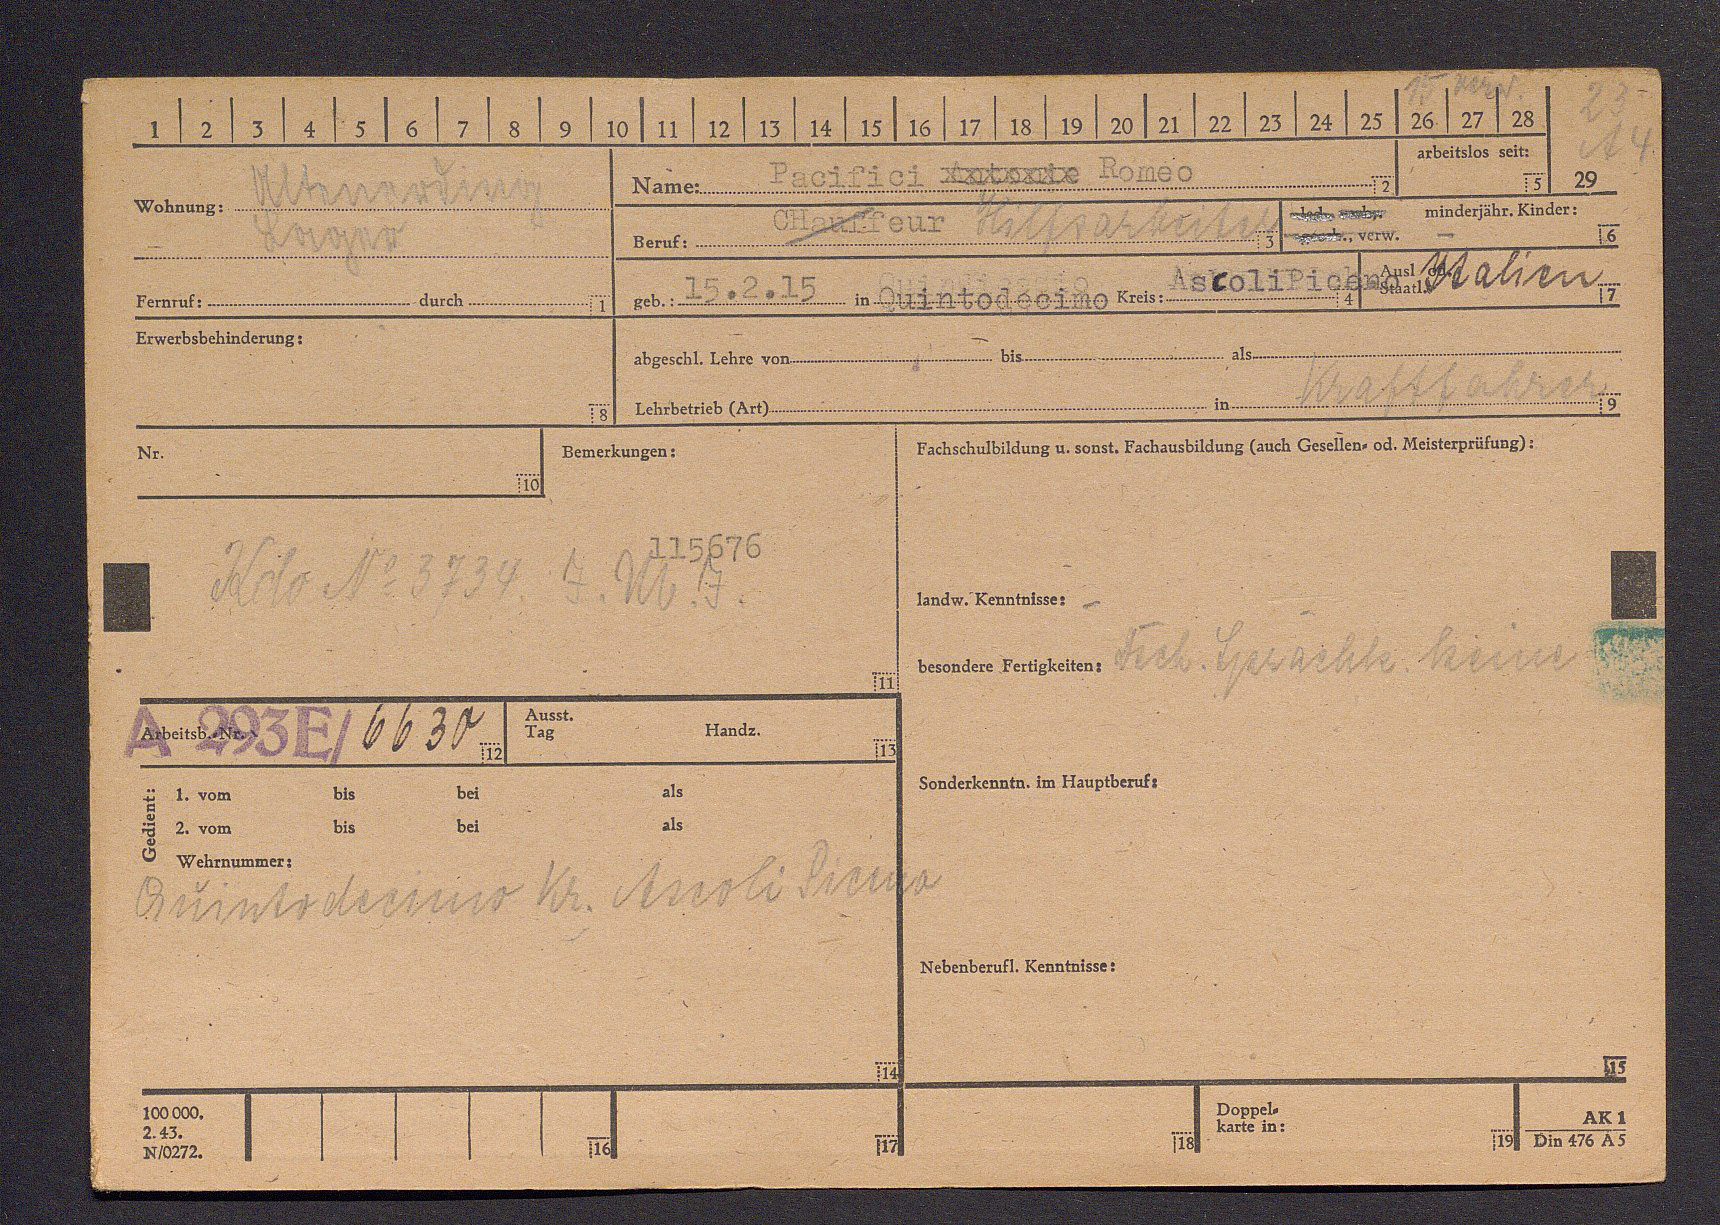 15 verw.
23
A 4
1 2 3 4 5 6 7 8 9 10 11 12 13 14 15 16 17 18 19 20 21 22 23 24 25 26 27 28
arbeitslos seit:
5 29
Wohnung: Altenerding
Lager
Fernruf: durch 1
Name: Pacifici Antonie Romeo 2
Beruf: CHauffeur Hilfsarbeiter 3
led. verh.
gesch., verw.
minderjähr. Kinder:
– 6
geb.: 15.2.15 in Quintodecimo Kreis: AscoliPiceno 4
Ausl od.
Staatl. Italien 7
Erwerbsbehinderung:
8
abgeschl. Lehre von bis als
Kraftfahrer
Lehrbetrieb (Art) in 9
Nr.
10
Bemerkungen:
115676
Kdo No 3734. I. M. I.
11
Fachschulbildung u. sonst. Fachausbildung (auch Gesellen- od. Meisterprüfung):
landw. Kenntnisse: –
besondere Fertigkeiten: keine
Sonderkenntn. im Hauptberuf:
Nebenberufl. Kenntnisse:
15
Arbeitsb.-Nr. A 293E/ 6630 12
Ausst.
Tag Handz. 13
Gedient:
1. vom bis bei als
2. vom bis bei als
Wehrnummer:
Quintodecimo Kr. Ascoli Piceno
14
100 000.
2. 43.
N/0272.
16
17
18
Doppel-
karte in:
19
AK 1
Din 476 A 5